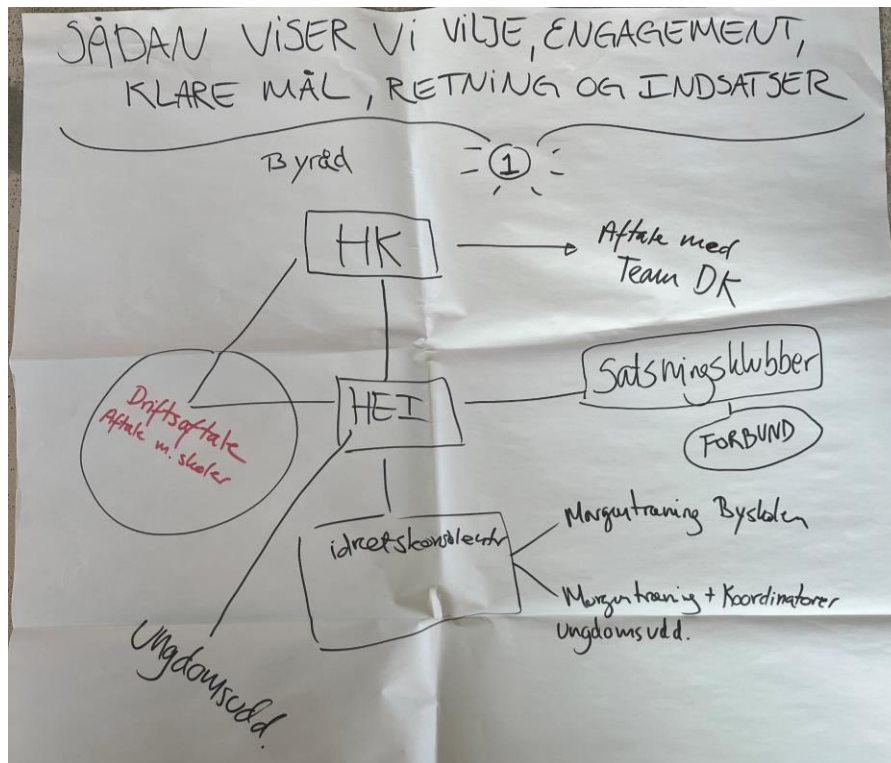 SÅDAN VISER VI VILJE, ENGAGEMENT,
KLARE MÅL, RETNING OG INDSATSER
Byråd
1
HK
Aftale med
Team DK
Driftsaftale
Aftale m. skoler
HEI
Satsningsklubber
FORBUND
idrætskonsulenter
Morgentræning Byskolen
Morgentræning + Koordinatorer
Ungdomsudd.
Ungdomsudd.